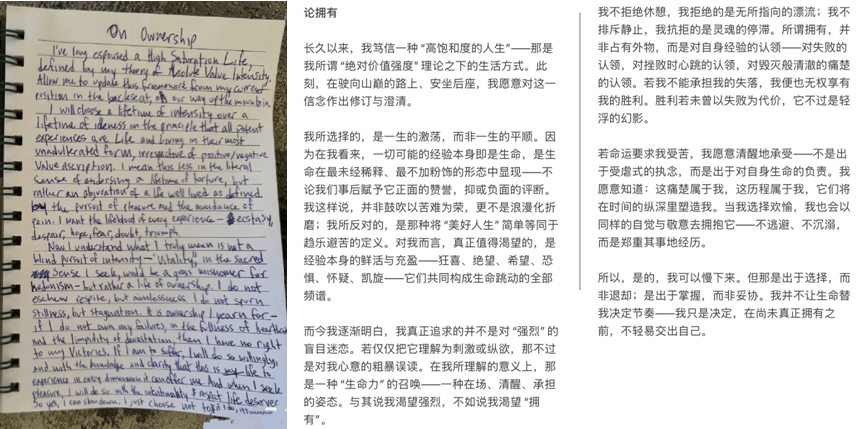 On Ownership
I've long espoused a High Saturation Life,
defined by my theory of Absolute Value Intensity.
Allow me to update this framework from my current
position in the backseat, on our way up the mountain.
I will choose a lifetime of intensity over a
lifetime of idleness on the principle that all potent
experiences are Life and Living in their most
unadulterated form, irrespective of positive/negative
value ascription. I mean this less in the literal
sense of endorsing a lifetime of torture, but
rather an abjuration of a life well lived as defined
by the pursuit of pleasure and the avoidance of
pain. I want the lifeblood of every experience – ecstasy,
despair, hope, fear, doubt, triumph.
Now I understand what I truly mean is not a
blind pursuit of intensity – "vitality," in the sacred
sense I seek, would be a gross misnomer for
hedonism – but rather a life of ownership. I do not
eschew respite, but aimlessness. I do not spurn
stillness, but stagnation. It is ownership I yearn for –
if I do not own my failures, in the fullness of heartbreak
and the limpidity of devastation, then I have no right
to my victories. If I am to suffer, I will do so willingly,
and with the knowledge and clarity that this is my life to
experience in every dimension it can offer me. And when I seek
pleasure, I will do so with the intentionality & respect life deserves
So yes, I can slow down. I just choose not to
论拥有
长久以来，我笃信一种“高饱和度的人生”——那是
我所谓“绝对价值强度”理论之下的生活方式。此
刻，在驶向山巅的路上、安坐后座，我愿意对这一
信念作出修订与澄清。
我所选择的，是一生的激荡，而非一生的平顺。因
为在我看来，一切可能的经验本身即是生命，是生
命在最未经稀释、最不加粉饰的形态中显现——不
论我们事后赋予它正面的赞誉，抑或负面的评断。
我这样说，并非鼓吹以苦难为荣，更不是浪漫化折
磨；我所反对的，是那种将“美好人生”简单等同于
趋乐避苦的定义。对我而言，真正值得渴望的，是
经验本身的鲜活与充盈——狂喜、绝望、希望、恐
惧、怀疑、凯旋——它们共同构成生命跳动的全部
频谱。
而今我逐渐明白，我真正追求的并不是对“强烈”的
盲目迷恋。若仅仅把它理解为刺激或纵欲，那不过
是对我心意的粗暴误读。在我所理解的意义上，那
是一种“生命力”的召唤——一种在场、清醒、承担
的姿态。与其说我渴望强烈，不如说我渴望“拥
有”。
我不拒绝休憩，我拒绝的是无所指向的漂流；我不
排斥静止，我抗拒的是灵魂的停滞。所谓拥有，并
非占有外物，而是对自身经验的认领——对失败的
认领，对挫败时心跳的认领，对毁灭般清澈的痛楚
的认领。若我不能承担我的失落，我便也无权享有
我的胜利。胜利若未曾以失败为代价，它不过是轻
浮的幻影。
若命运要求我受苦，我愿意清醒地承受——不是出
于受虐式的执念，而是出于对自身生命的负责。我
愿意知道：这痛楚属于我，这历程属于我，它们将
在时间的纵深里塑造我。当我选择欢愉，我也会以
同样的自觉与敬意去拥抱它——不逃避、不沉溺，
而是郑重其事地经历。
所以，是的，我可以慢下来。但那是出于选择，而
非退却；是出于掌握，而非妥协。我并不让生命替
我决定节奏——我只是决定，在尚未真正拥有之
前，不轻易交出自己。